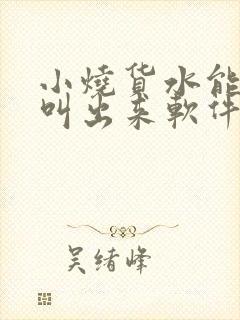 小燒货水能
叫出来軟件
吴绪峰